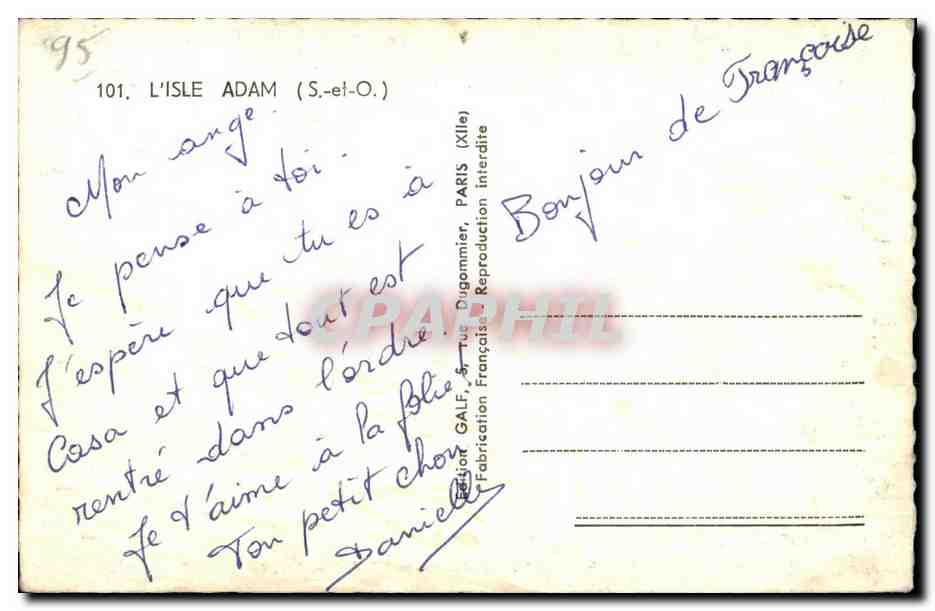 95
101. L'ISLE ADAM (S.-et-O.)
Mon ange.
Je pense à toi.
J'espère que tu es à
Casa et que tout est
rentré dans l'ordre.
Je t'aime à la folie
Ton petit chou
Danielle
Edition GALF, 5, rue Dugommier, PARIS (XIIe)
Fabrication Française - Reproduction interdite
Bonjour de Françoise
CPAPHIL